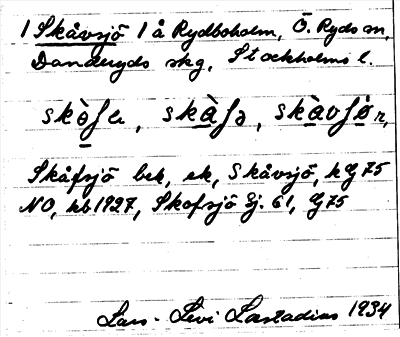 1 Skåvsjö 1 å Rydboholm, Ö. Ryds sn,
Danderyds skg, Stockholms l.
skò̱ʃe, skà̱ʃə, skà̱vʃȯ̱r,
Skåfsjö bek, ek, Skåvsjö, k G 75
NO, hb 1927, Skofsjö Sj. 61, G 75
Lars-Levi Læstadius 1934